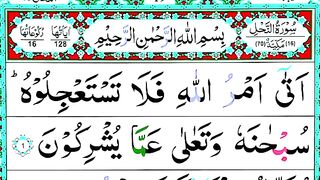 سُوْرَةُ النَّحْلِ
(16) مَكِّيَّةٌ (70)
بِسْمِ اللّٰهِ الرَّحْمٰنِ الرَّحِيْمِ
اٰيَاتُهَا 128
رُكُوْعَاتُهَا 16
اَتٰۤى اَمْرُ اللّٰهِ فَلَا تَسْتَعْجِلُوْهُ ؕ
سُبْحٰنَهٗ وَتَعٰلٰى عَمَّا يُشْرِكُوْنَ ۝۱